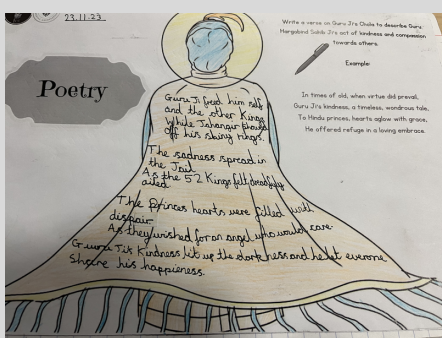 23.11.23
Poetry
Write a verse on Guru Ji's Chola to describe Guru
Hargobind Sahib Ji's act of kindness and compassion
towards others.
Example:
In times of old, when virtue did prevail,
Guru Ji's kindness, a timeless, wondrous tale,
To Hindu princes, hearts aglow with grace,
He offered refuge in a loving embrace.
Guru Ji freed him self
and the other Kings
While Jahangir showed
off his shiny rings.
The sadness spread in
the Jail
As the 52 Kings felt dreadfully
ailed
The Princes hearts were filled with
dispair
As they wished for an angel who would care
Guru Ji's Kindness lit up the darkness and he let everone
Share his happieness.